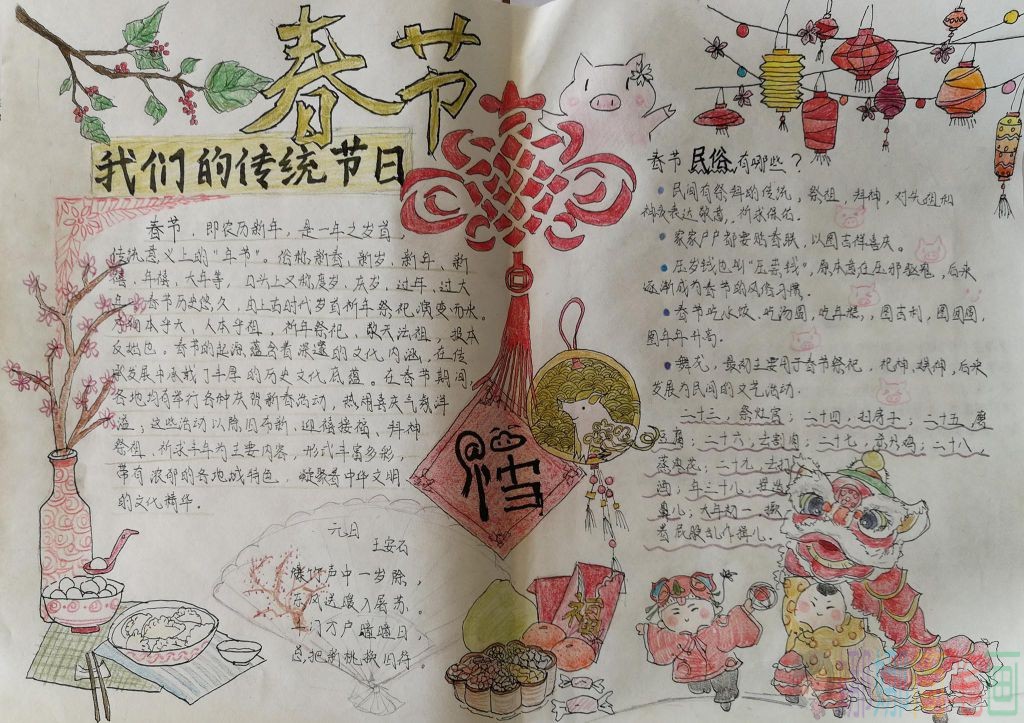 春节
我们的传统节日
春节，即农历新年，是一年之岁首，
传统意义上的“年节”。俗称新春、新岁、新年、新
禧、年禧、大年等，口头上又称度岁、庆岁、过年、过大
年。春节历史悠久，由上古时代岁首祈年祭祀演变而来。
万物本乎天、人本乎祖，祈年祭祀、敬天法祖，报本
反始也。春节的起源蕴含着深邃的文化内涵，在传
承发展中承载了丰厚的历史文化底蕴。在春节期间，
各地均有举行各种庆贺新春活动，热闹喜庆气氛洋
溢；这些活动以除旧布新、迎禧接福、拜神
祭祖、祈求丰年为主要内容，形式丰富多彩，
带有浓郁的各地域特色，凝聚着中华文明
的文化精华。
元日
王安石
爆竹声中一岁除，
东风送暖入屠苏。
千门万户曈曈日，
总把新桃换旧符。
福
春节民俗有哪些？
民间有祭拜的传统，祭祖，拜神，对先祖和
神表达敬意，祈求保佑。
家家户户都要贴春联，以图吉祥喜庆。
压岁钱也叫“压祟钱”，原本意在压邪驱鬼，后来
逐渐成为春节的风俗习惯。
春节吃水饺、吃汤圆、吃年糕，图吉利，图团圆，
图年年升高。
舞龙，最初主要用于春节祭祀，祀神娱神，后来
发展为民间的文艺活动。
二十三，祭灶官；二十四，扫房子；二十五，磨
豆腐；二十六，去割肉；二十七，杀只鸡；二十八，
蒸枣花；二十九，去打
酒；年三十儿，捏造
鼻儿；大年初一，撅
着屁股乱作揖儿。